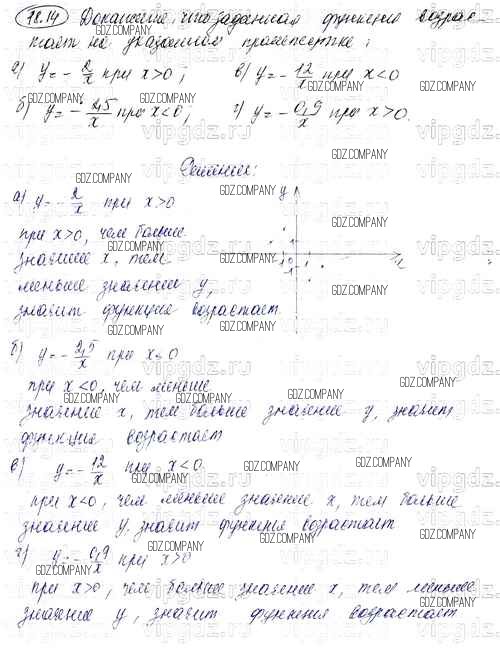 18.14 Докажите, что заданная функция возрас-
тает на указанном промежутке:
а) y = - 2/x при x>0; в) y = - 12/x при x<0
б) y = - 2,5/x при x<0; г) y = - 0,9/x при x>0.
Решение:
а) y = - 2/x при x>0
при x>0, чем больше
значение x, тем
меньше значение y,
значит функция возрастает
б) y = - 2,5/x при x<0
при x<0, чем меньше
значение x, тем больше значение y, значит
функция возрастает
в) y = - 12/x при x<0
при x<0, чем меньше значение x, тем больше
значение y, значит функция возрастает
г) y = - 0,9/x при x>0
при x>0, чем больше значение x, тем меньше
значение y, значит функция возрастает
y
x
1
0
-1
GDZ.COMPANY
vipgdz.ru